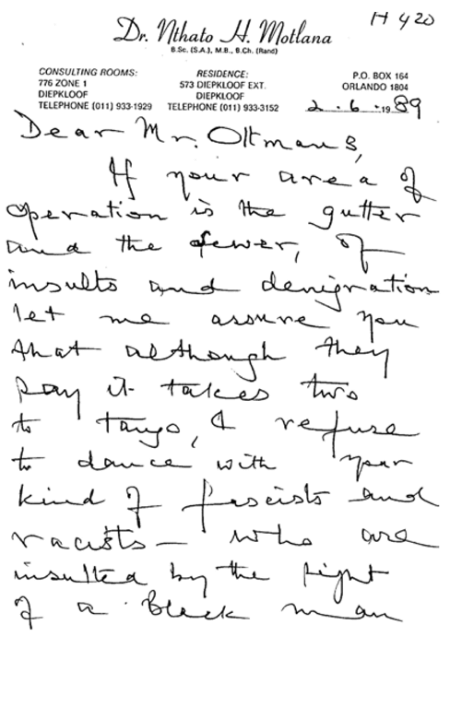 H 420
Dr. Nthato H. Motlana
B.Sc. (S.A.), M.B., B.Ch. (Rand)
CONSULTING ROOMS:
776 ZONE 1
DIEPKLOOF
TELEPHONE (011) 933-1929
RESIDENCE:
573 DIEPKLOOF EXT.
DIEPKLOOF
TELEPHONE (011) 933-3152
P.O. BOX 164
ORLANDO 1804
2 . 6 . 1989
Dear Mr. Oltmans,
If your area of
operation is the gutter
and the sewer, of
insults and denigration
let me assure you
that although they
say it takes two
to tango, I refuse
to dance with your
kind of fascists and
racists — who are
insulted by the sight
of a Black man